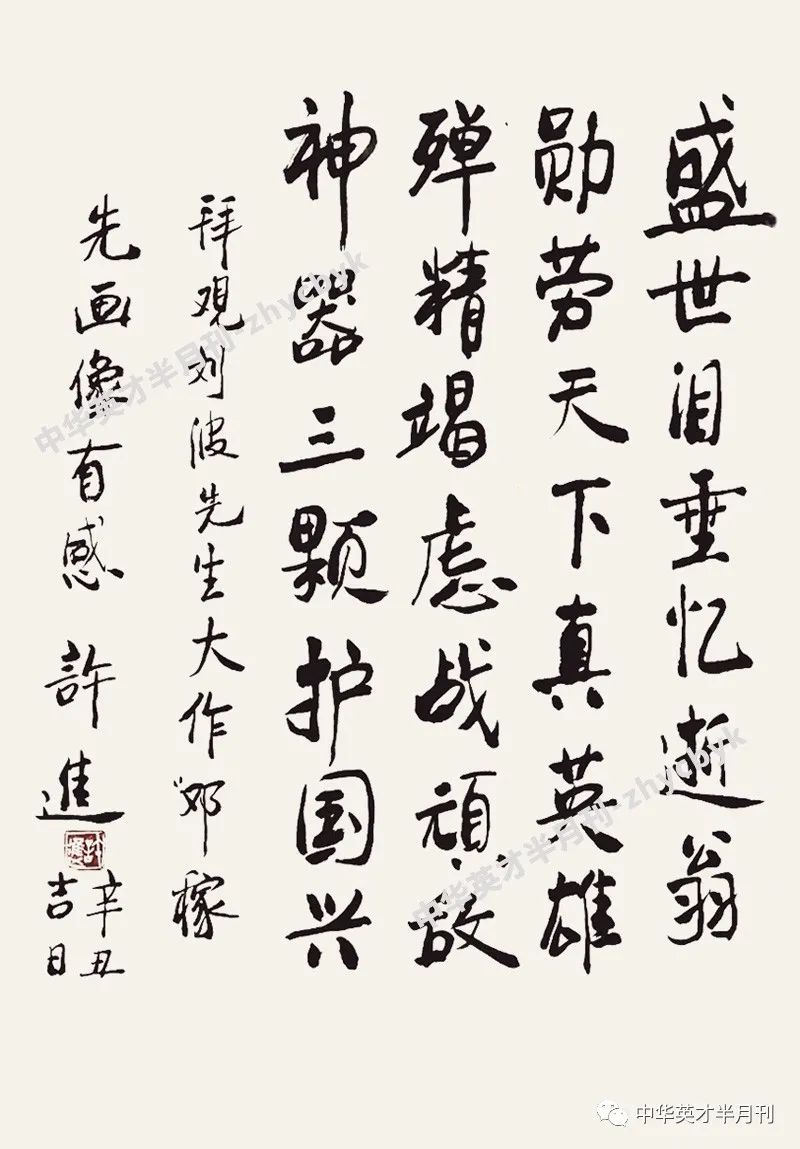 盛世泪垂忆逝翁
勋劳天下真英雄
殚精竭虑战頑敌
神器三颗护国兴
拜观刘波先生大作邓稼
先画像有感 許進
辛丑
吉日
中华英才半月刊-zhycbyk
中华英才半月刊-zhycbyk
中华英才半月刊